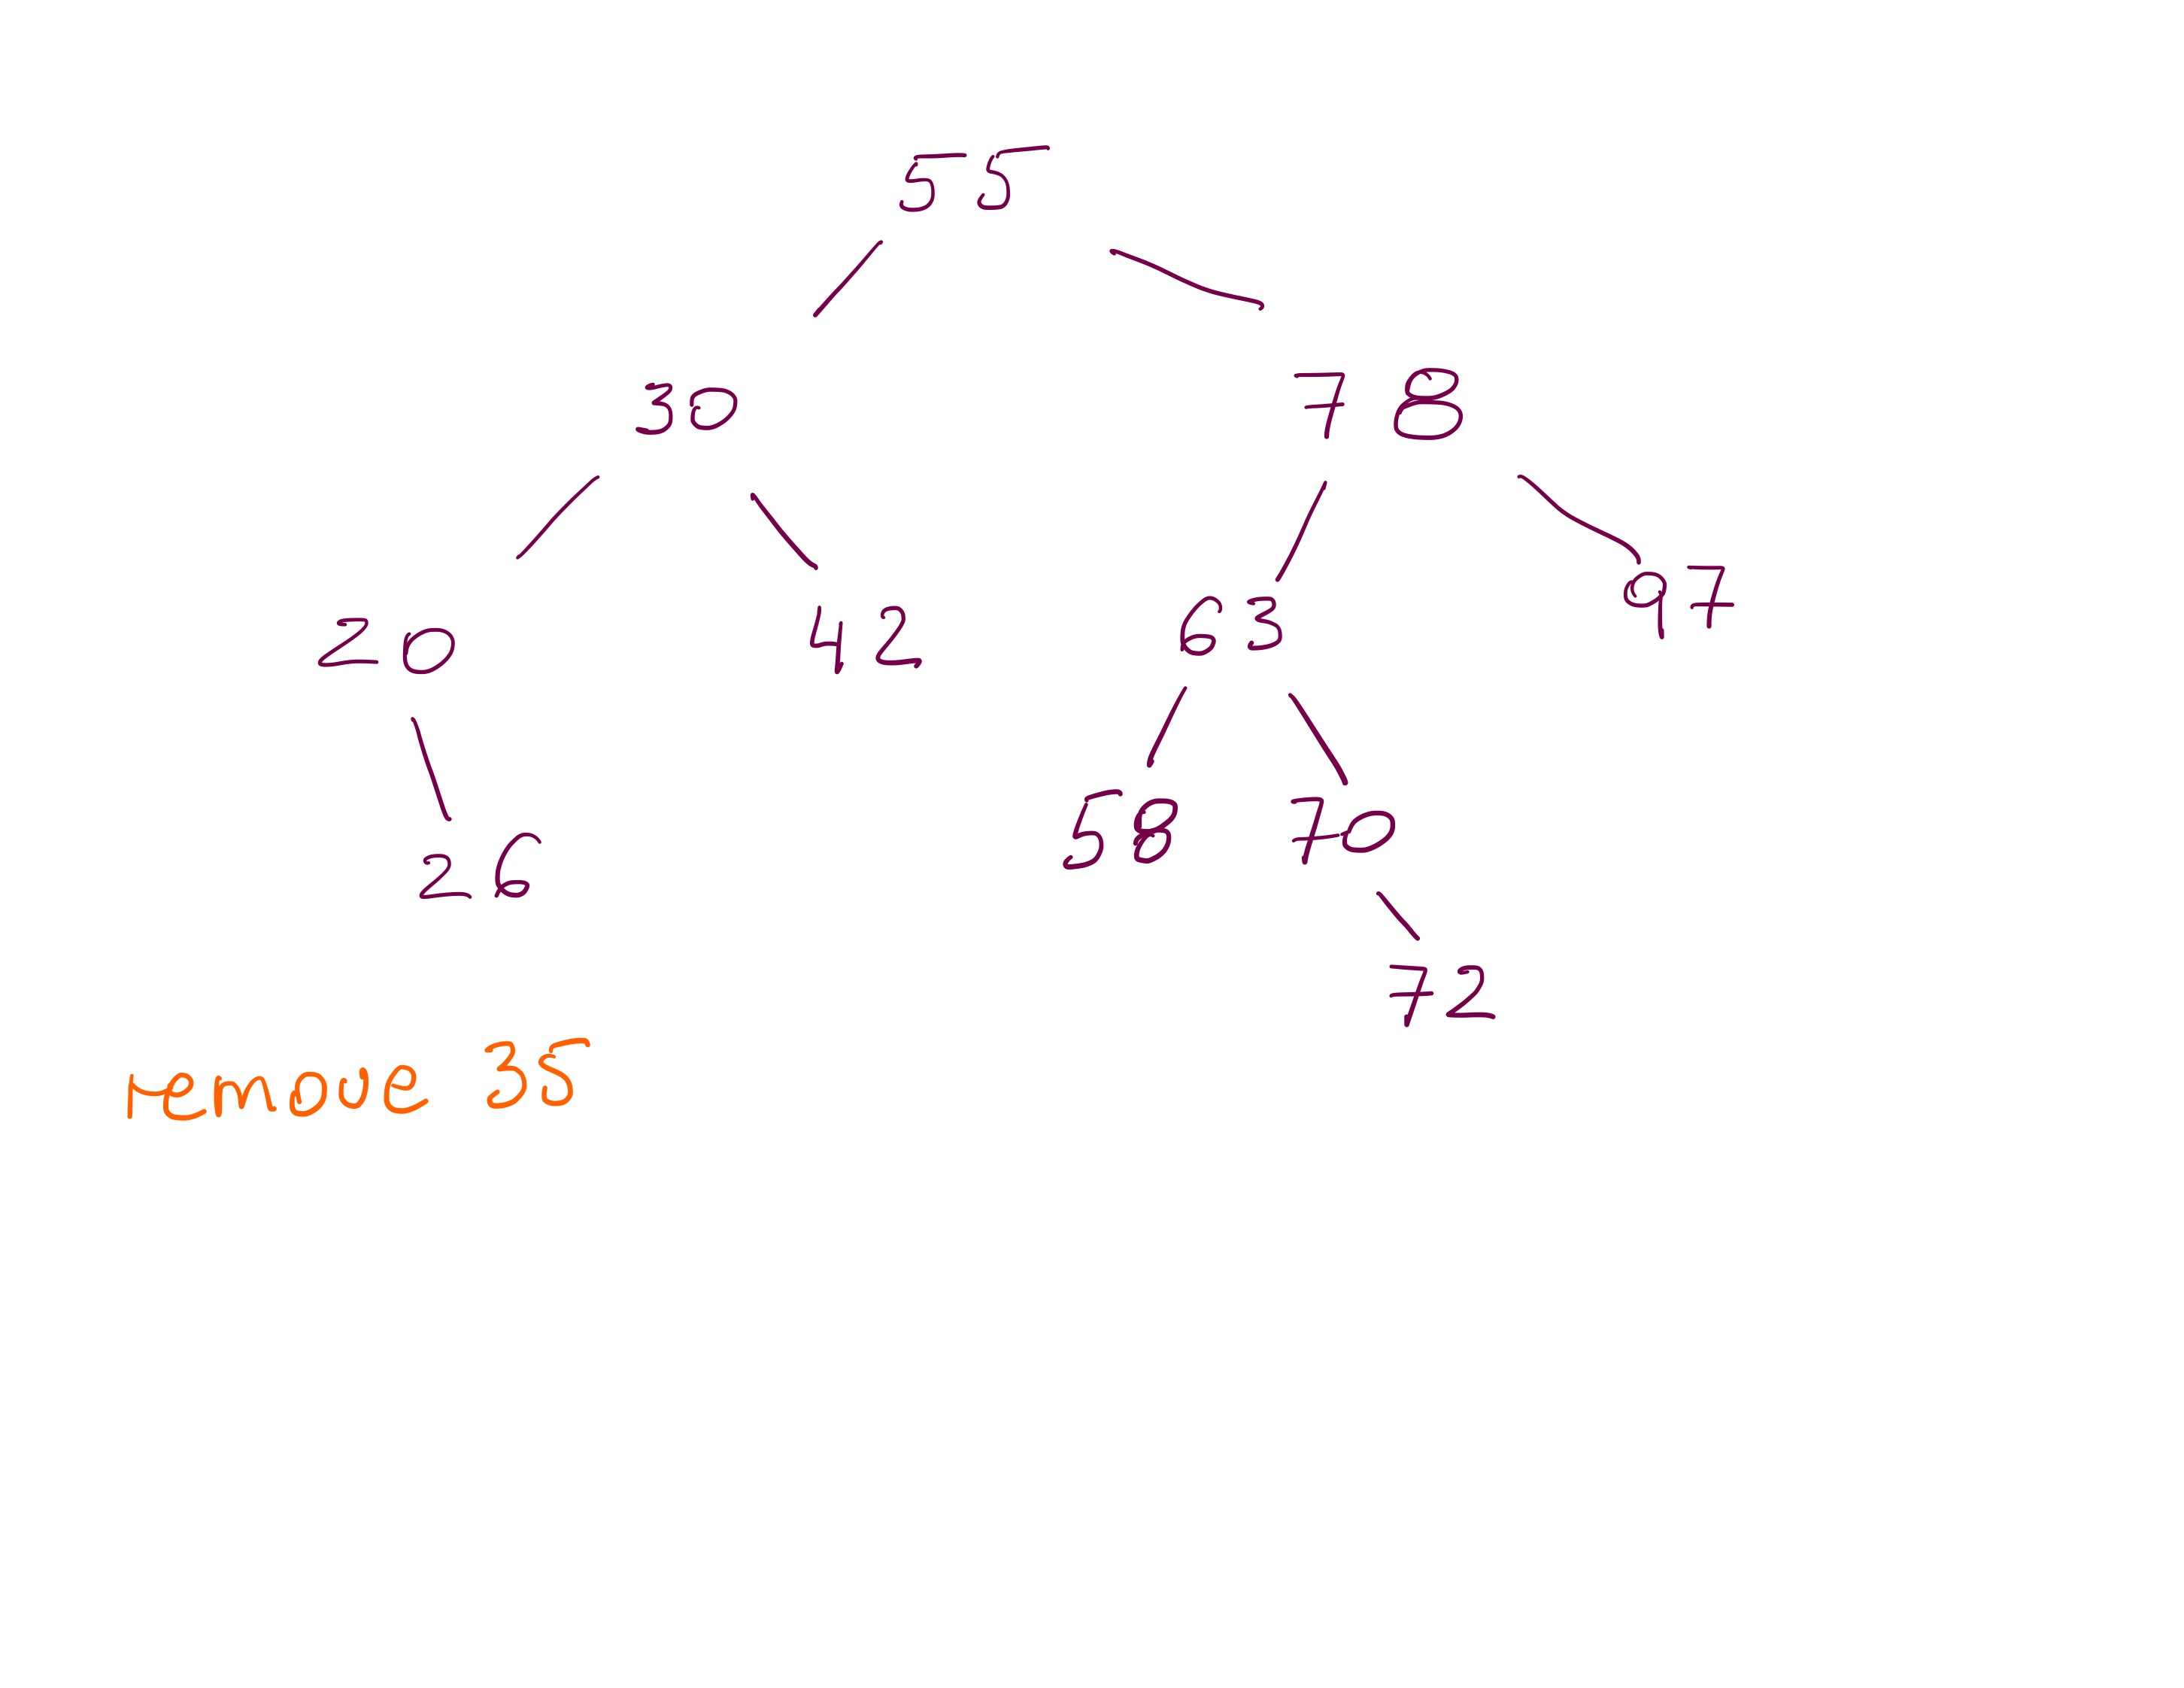 55
30 78
20 42 63 97
26 58 70
72
remove 35